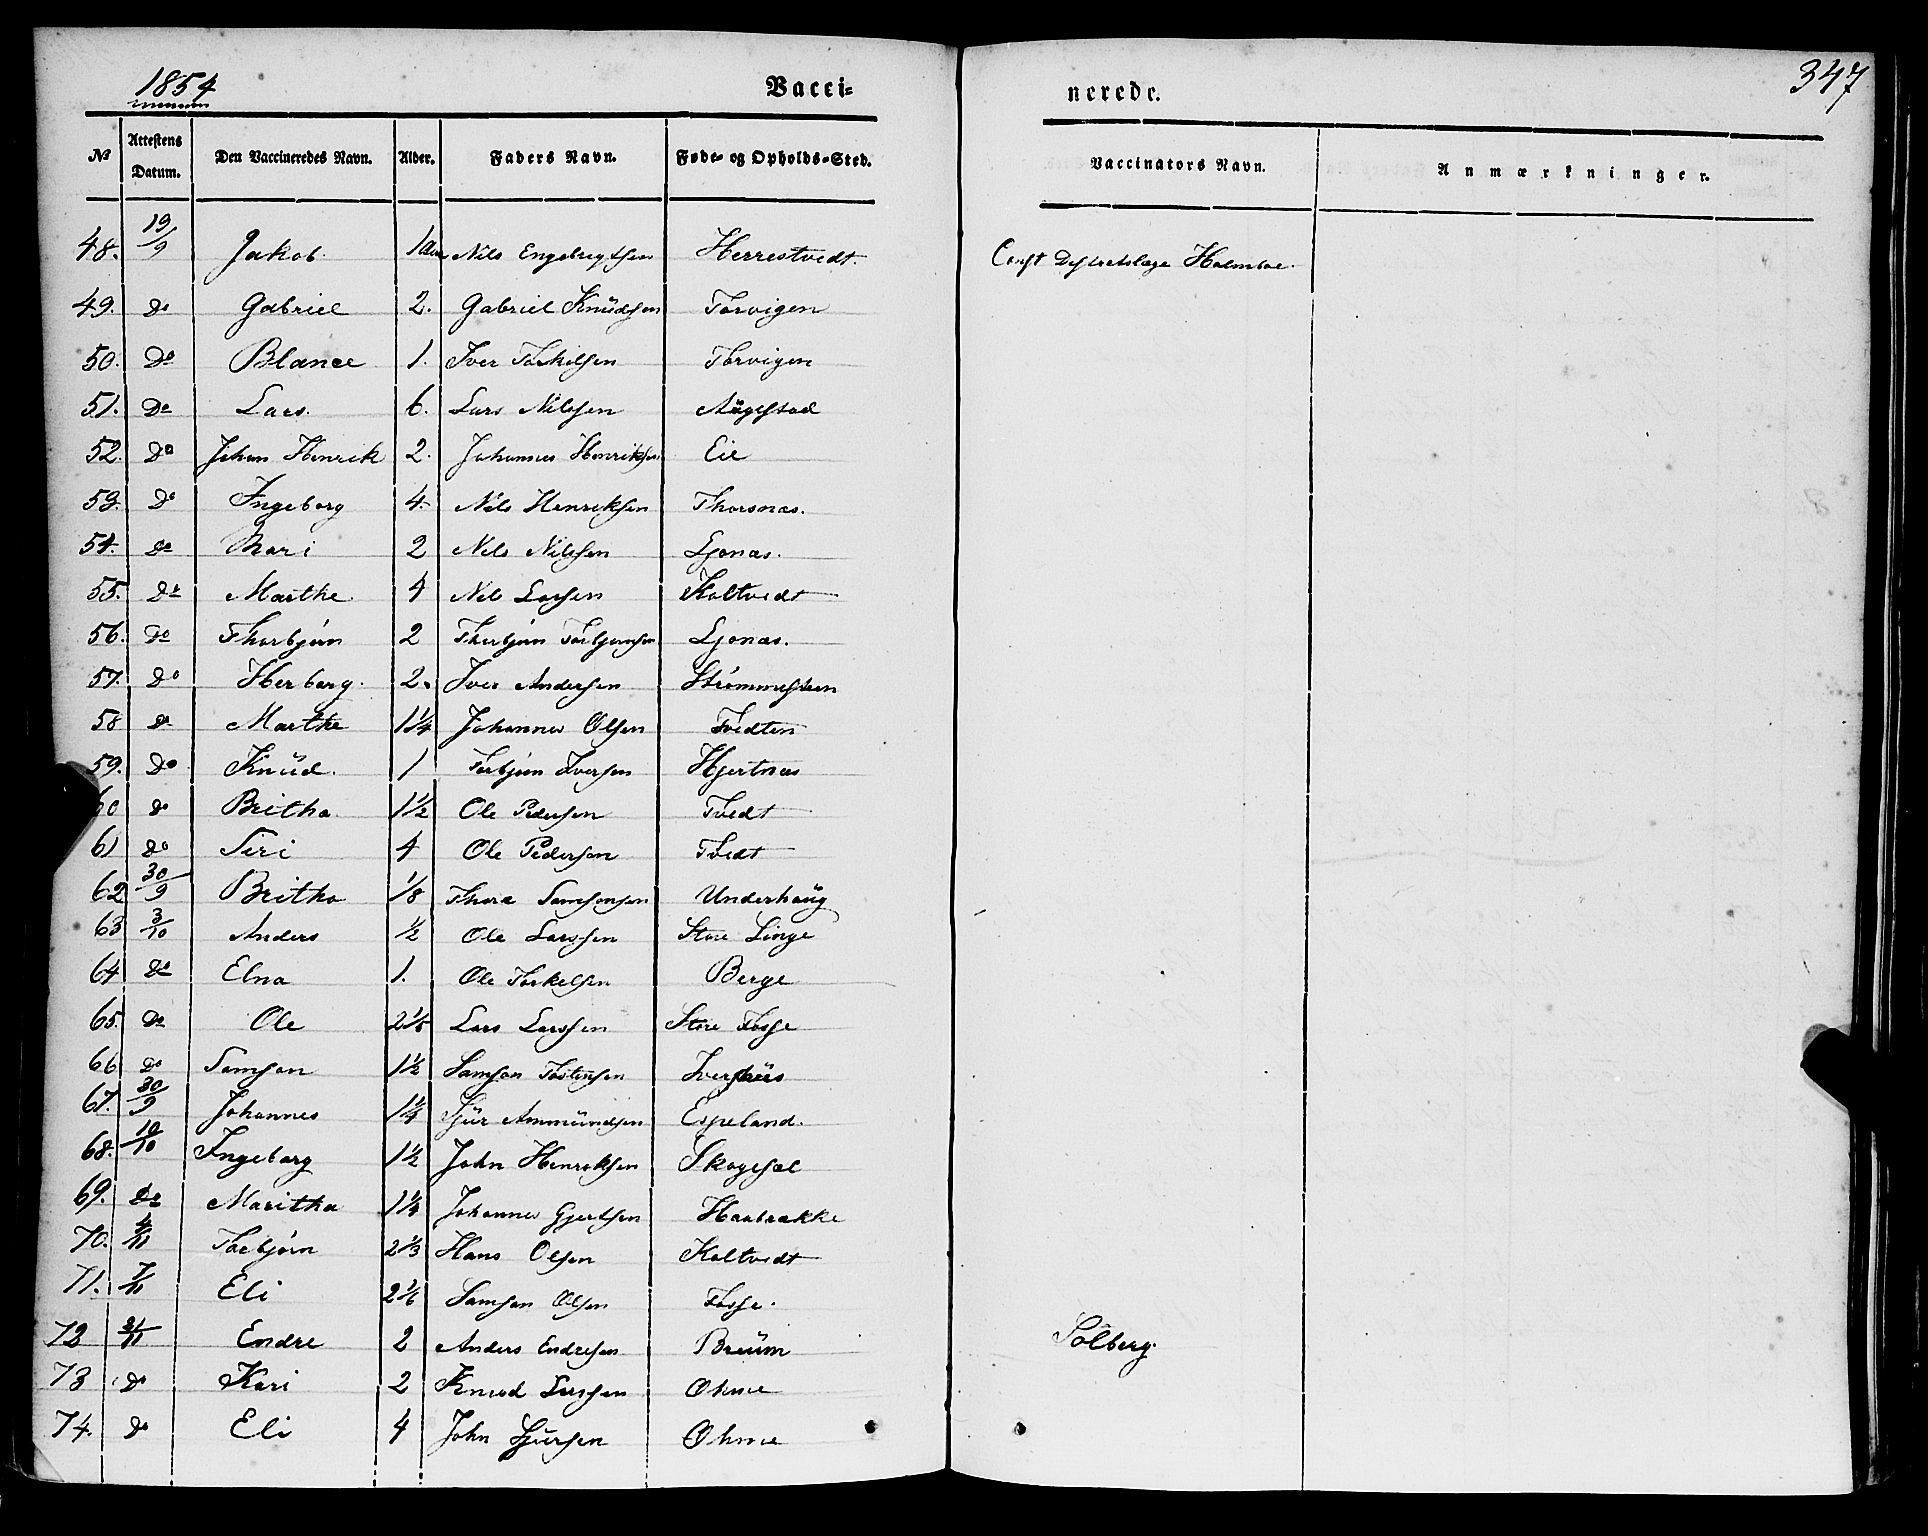 1854 Vacci= nerede. 347
No Attestens Datum. Den Vaccineredes Navn. Alder. Faders Navn. Føde- og Opholds-Sted. Vaccinators Navn. Anmærkninger.
48. 19/9 Jakob. 1 Nils Engebregtsen Herrestvedt. Const Distrctslæge Holmboe.
49. Do Gabriel 2. Gabriel Knüdsen Torvigen
50. Do Blance 1. Iver Torkilsen Torvigen
51. Do Lars. 6. Lars Nilssen Aügestad
52. Do Johan Henrik 2. Johannes Henriksen Eie
53. Do Ingeborg 4. Nils Henriksen Thorsnæs.
54. Do Mari 2 Nils Nilssen Ljonæs.
55. Do Marthe. 4 Nils Larsen Koltvedt
56. Do Thorbjørn 2 Thorbjørn Torbjørnsen Ljonæs.
57. Do Herborg. 2. Iver Andersen Strømmesteen
58 Do Marthe 1 1/4 Johannes Olsen Tvedten
59. Do Knüd. 1 Torbjørn Iversen Hjertnæs
60 Do Britha. 1 1/2 Ole Pedersen Tvedt
61 Do Siri 4 Ole Pedersen Tvedt
62 30/9 Britha 1/8 Thore Samsonsen Underhaüg
63 3/10 Anders 1/2 Ole Larssen Store Linge
64 Do Elna 1. Ole Torkelsen Berge
65. Do Ole 2 1/5 Lars Larssen Store Fosse
66 Do Samson 1 1/2 Samson Tostensen Iverhüs
67. 30/9 Johannes 1 1/4 Sjür Ammündsen Espeland.
68. 10/10 Ingeborg 1 1/2 John Henriksen Skogesæl
69. Do Maritha 1 1/4 Johannes Gjertsen Haabrække
70. 4/11 Torbjørn 2 1/3 Hans Olsen Koltvedt
71. 7/11 Eli 2 1/6 Samson Olsen Fosse.
72 21/11 Endre 2 Anders Endresen Breüm Sölberg.
73 Do Kari 2 Knud Larssen Ohme
74. Do Eli 4 John Sjursen Ohme